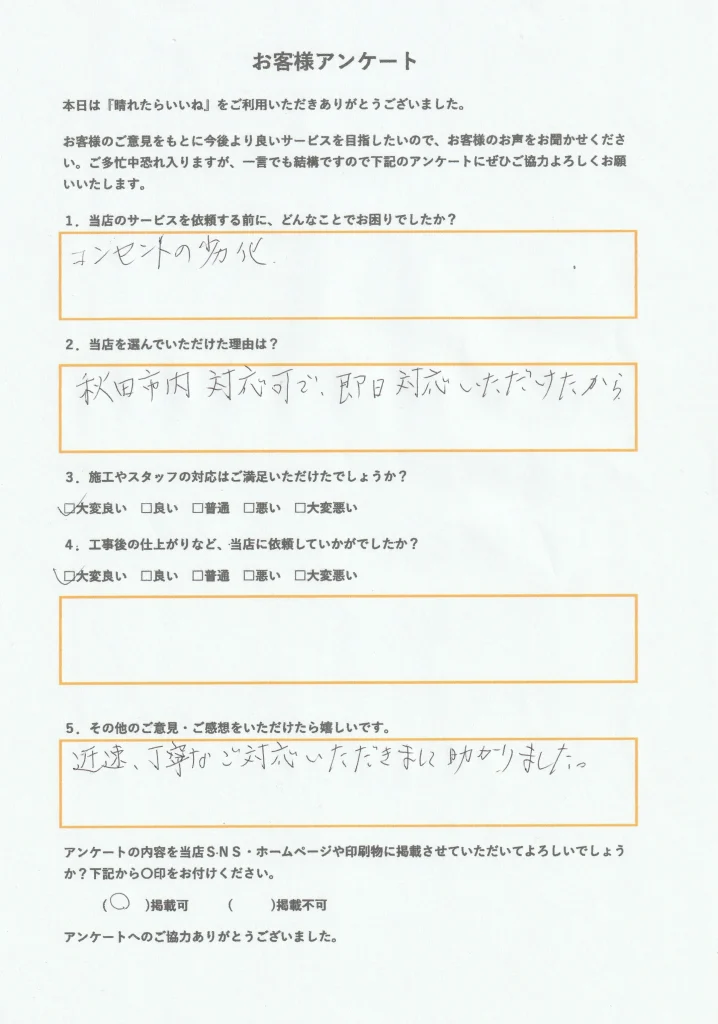 お客様アンケート
本日は『晴れたらいいね』をご利用いただきありがとうございました。
お客様のご意見をもとに今後より良いサービスを目指したいので、お客様のお声をお聞かせくださ
い。ご多忙中恐れ入りますが、一言でも結構ですので下記のアンケートにぜひご協力よろしくお願
いいたします。
1．当店のサービスを依頼する前に、どんなことでお困りでしたか？
コンセントの劣化.
2．当店を選んでいただけた理由は？
秋田市内 対応可で、即日対応いただけたから
3．施工やスタッフの対応はご満足いただけたでしょうか？
☑大変良い □良い □普通 □悪い □大変悪い
4．工事後の仕上がりなど、当店に依頼していかがでしたか？
☑大変良い □良い □普通 □悪い □大変悪い
5．その他のご意見・ご感想をいただけたら嬉しいです。
迅速、丁寧なご対応いただきまして助かりました。
アンケートの内容を当店SNS・ホームページや印刷物に掲載させていただいてよろしいでしょう
か？下記から〇印をお付けください。
(〇 )掲載可 ( )掲載不可
アンケートへのご協力ありがとうございました。